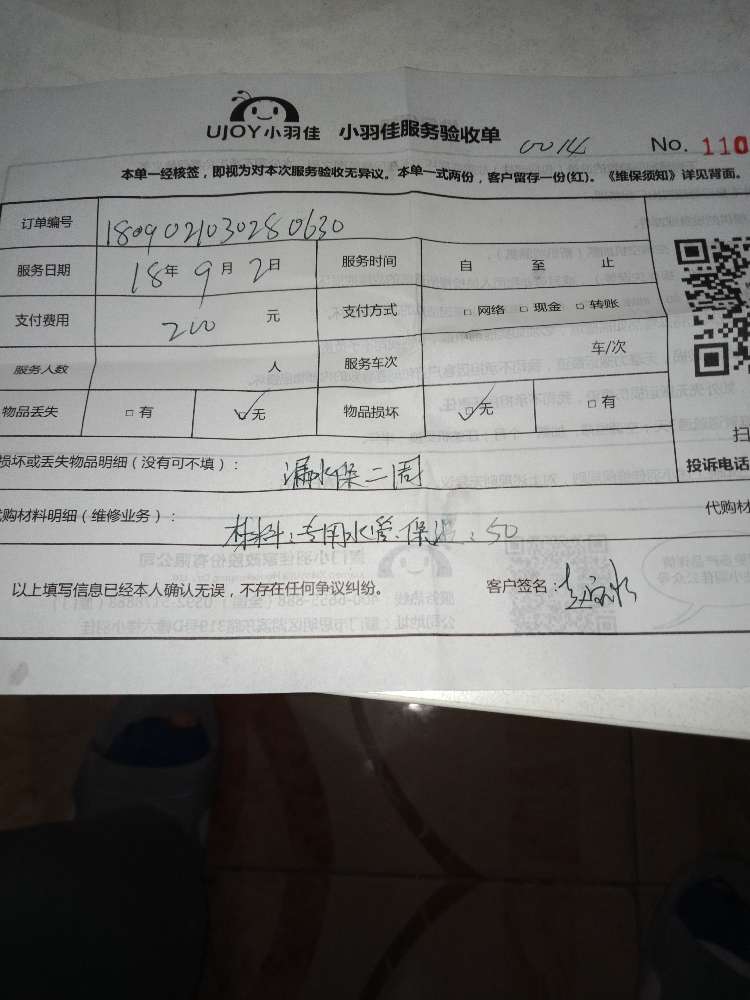 UJOY小羽佳 小羽佳服务验收单 0014 No. 110
本单一经核签，即视为对本次服务验收无异议。本单一式两份，客户留存一份(红)。《维保须知》详见背面。
订单编号 1809021030280630
服务日期 18年 9月 2日 服务时间 自 至 止
支付费用 200 元 支付方式 □ 网络 □ 现金 □ 转账
服务人数 人 服务车次 车/次
物品丢失 □ 有 ☑ 无 物品损坏 ☑ 无 □ 有
扫
损坏或丢失物品明细（没有可不填）： 漏水保二周 投诉电话
代购材料明细（维修业务）： 材料：专用水管 50 代购材
以上填写信息已经本人确认无误，不存在任何争议纠纷。 客户签名：